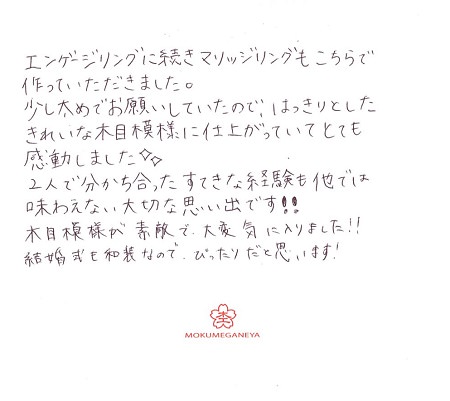 エンゲージリングに続きマリッジリングもこちらで
作っていただきました。
少し太めでお願いしていたので、はっきりとした
きれいな木目模様に仕上がっていてとても
感動しました◇◇
2人で分かち合ったすてきな経験も他では
味わえない大切な思い出です!!
木目模様が素敵で、大変気に入りました!!
結婚式も和装なので、ぴったりだと思います!
MOKUMEGANEYA